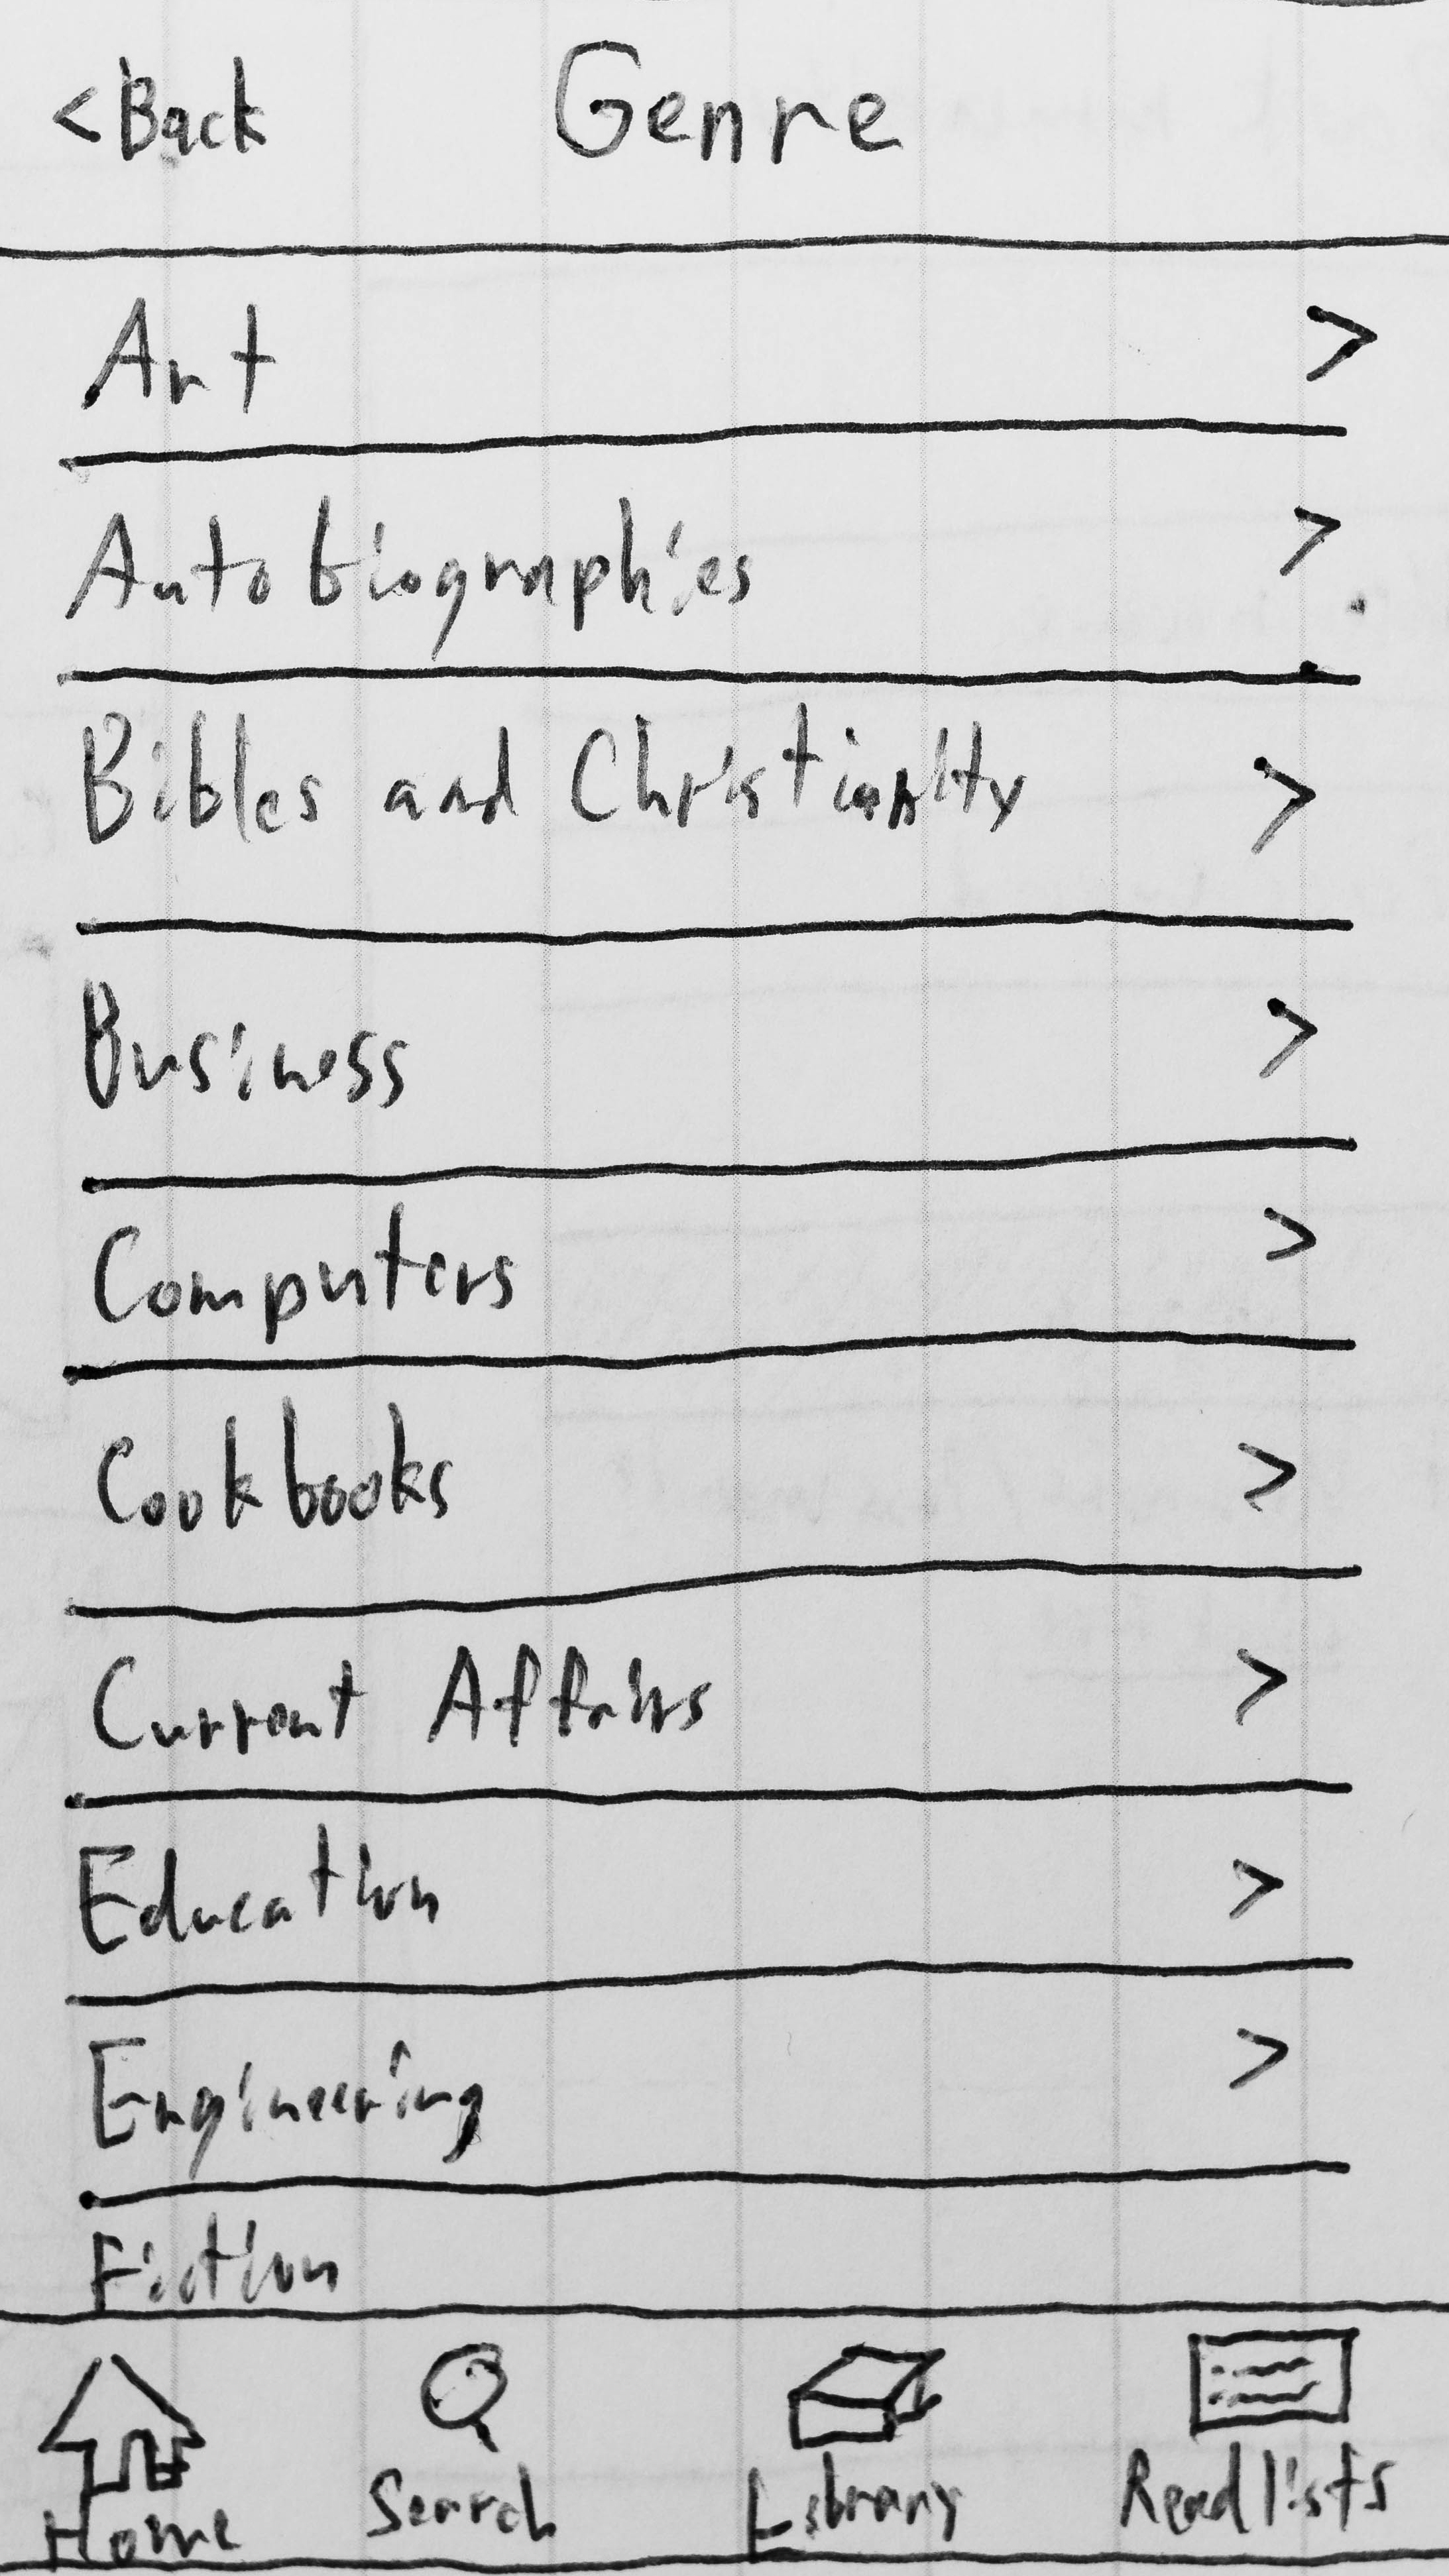 < Back Genre
Art >
Autobiographies >
Bibles and Christianity >
Business >
Computers >
Cookbooks >
Current Affairs >
Education >
Engineering >
Fiction
Home Search Library Readlists